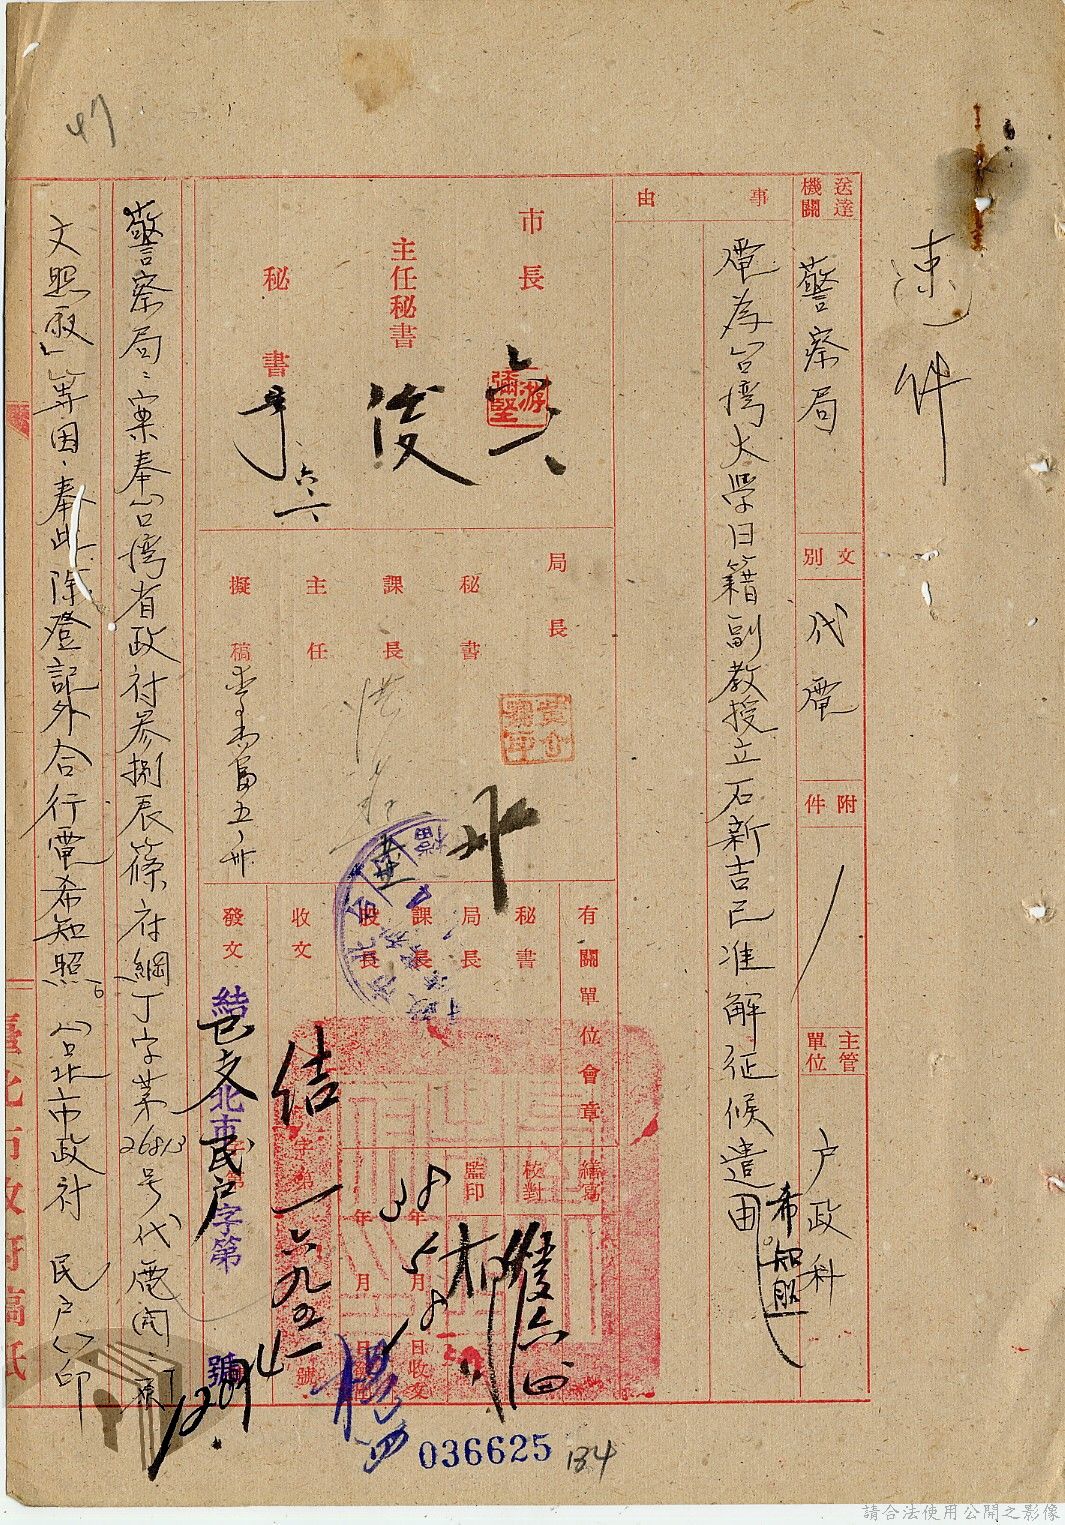 速件
送達機關
警察局
文別
代電
附件
主管單位
户政科
事由
電為台湾大学日籍副教授立石新吉已准解征候遣由
希知照
市長
主任秘書
秘書
六、一
游彌堅
俊
局長
秘書
課長
主任
擬稿
五、卅
洪
有關單位會章
秘書
局長
課長
股長
收文
發文
繕寫
校對
監印
38年5月8日收文
結
字第一六九五一號
北市民户字第12094號
警察局：案奉台湾省政府参捌辰篠府綱丁字第26813号代電開：「原
文照敍」等因，奉此，除登記外合行電希知照。台北市政府 民户 印
臺北市政府稿紙
47
036625
134
請合法使用公開之影像